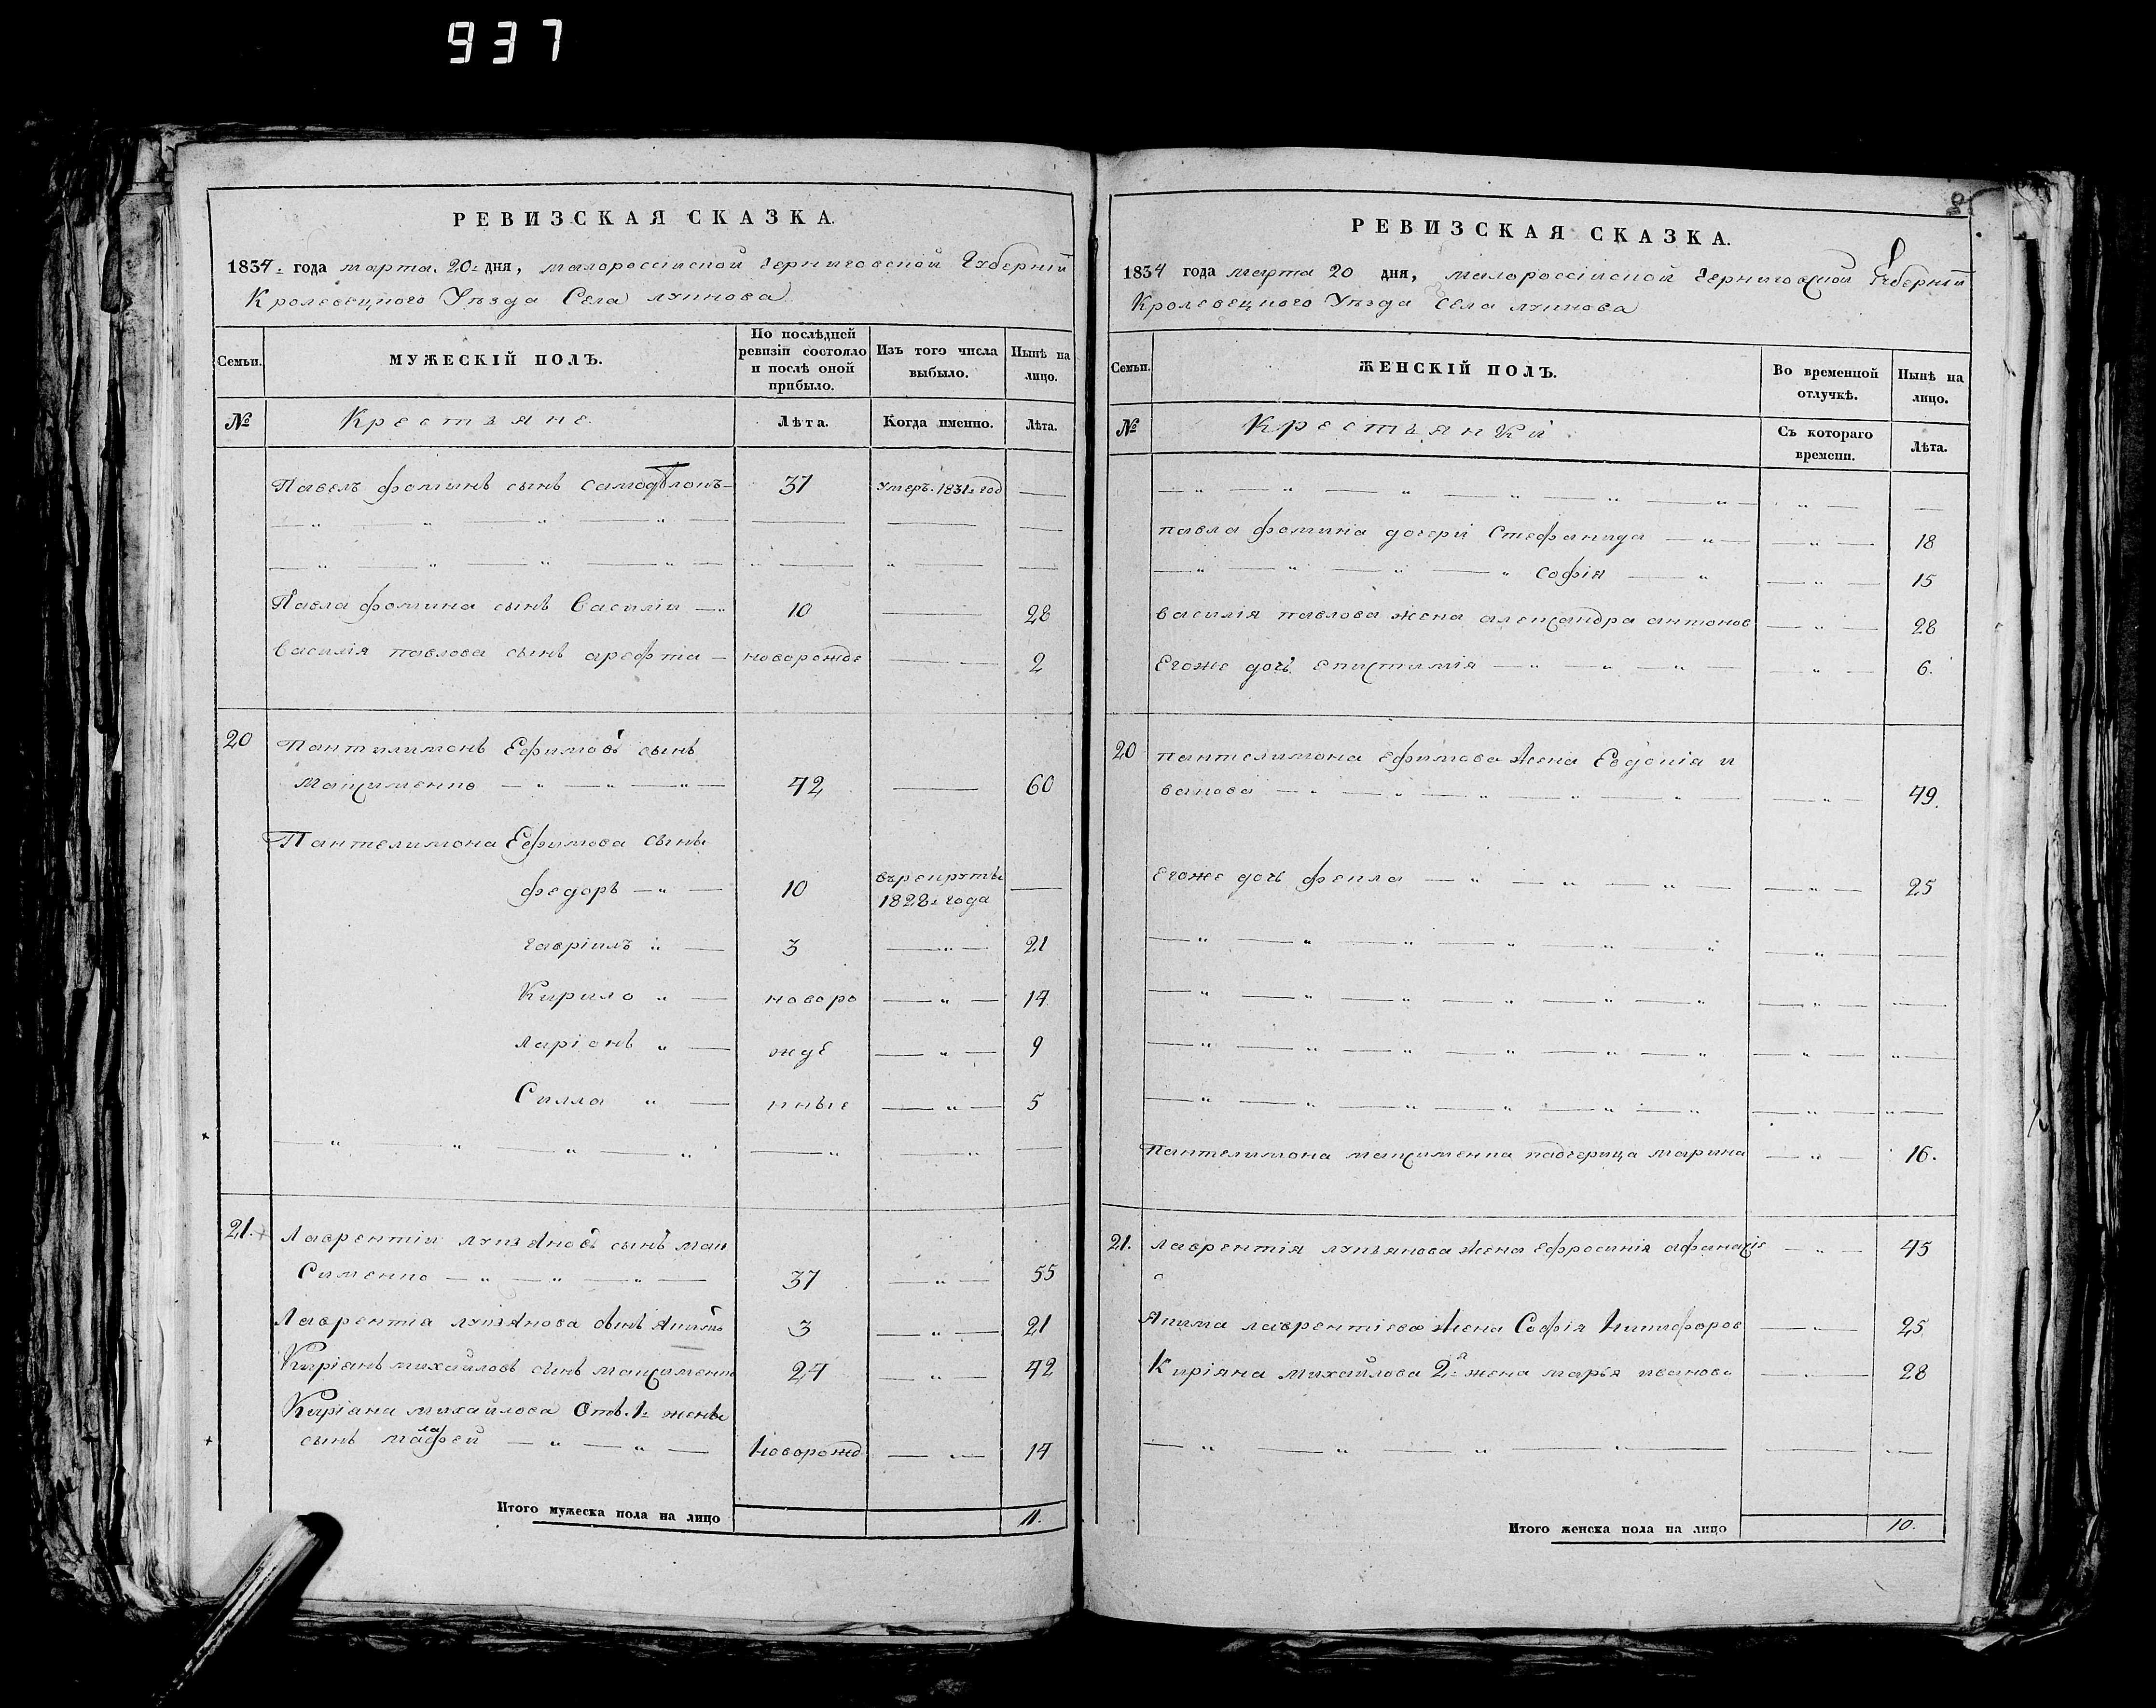 937
РЕВИЗСКАЯ СКАЗКА.
1834. года марта. 20. дня, малороссійской Черниговской Губерніи
Кролевецкого Уѣзда Села лукнова
Семьи.
МУЖЕСКІЙ ПОЛЪ.
По послѣдней ревизіи состояло и послѣ оной прибыло.
Изъ того числа выбыло.
Нынѣ на лицо.
№
Крестьяне.
Лѣта.
Когда именно.
Лѣта.
Павелъ фоминъ сынъ 37 умеръ. 1831. год
Павла фомина сынъ Василіи 10 28
Василія павлова сынъ арефта новорожде 2
20 Пантилимонъ Ефимовъ сынъ
Максименко 42 60
Пантелимона Ефимова сынъ
федоръ 10 въ рекруты 1828. года
гавріилъ 3 21
Кирило новоро 14
ларіонъ жде 9
Силла нные 5
21. Лаврентіи лукьяновъ сынъ мак
Сименко 37 55
Лаврентія лукьянова сынъ Якимъ 3 21
Киріянъ михайловъ сынъ максименк 24 42
Киріяна михайлова Отъ. 1. жены
сынъ 14
Новорожд
Итого мужеска пола на лицо 11.
РЕВИЗСКАЯ СКАЗКА.
1834 года марта 20 дня, малороссійской Черниговской Губерніи
Кролевецкого Уѣзда Села лукнова
Семьи.
ЖЕНСКІЙ ПОЛЪ.
Во временной отлучкѣ.
Нынѣ на лицо.
№
Крестьянки
Съ котораго времени.
Лѣта.
павла фомина дочери Стефанида 18
софія 15
василія павлова жена александра антонов 28
Егоже дочь епистимія 6.
20 пантелимона ефимова жена Евдокія и
ванова 49.
егоже дочь фекла 25
Пантелимона максименка падчерица марина 16.
21. лаврентія лукьянова жена ефросинія афанасіе 45
Якима лаврентіева жена Софія Никифоров 25
Киріяна михайлова 2я жена марья иванова 28
Итого женска пола на лицо 10.